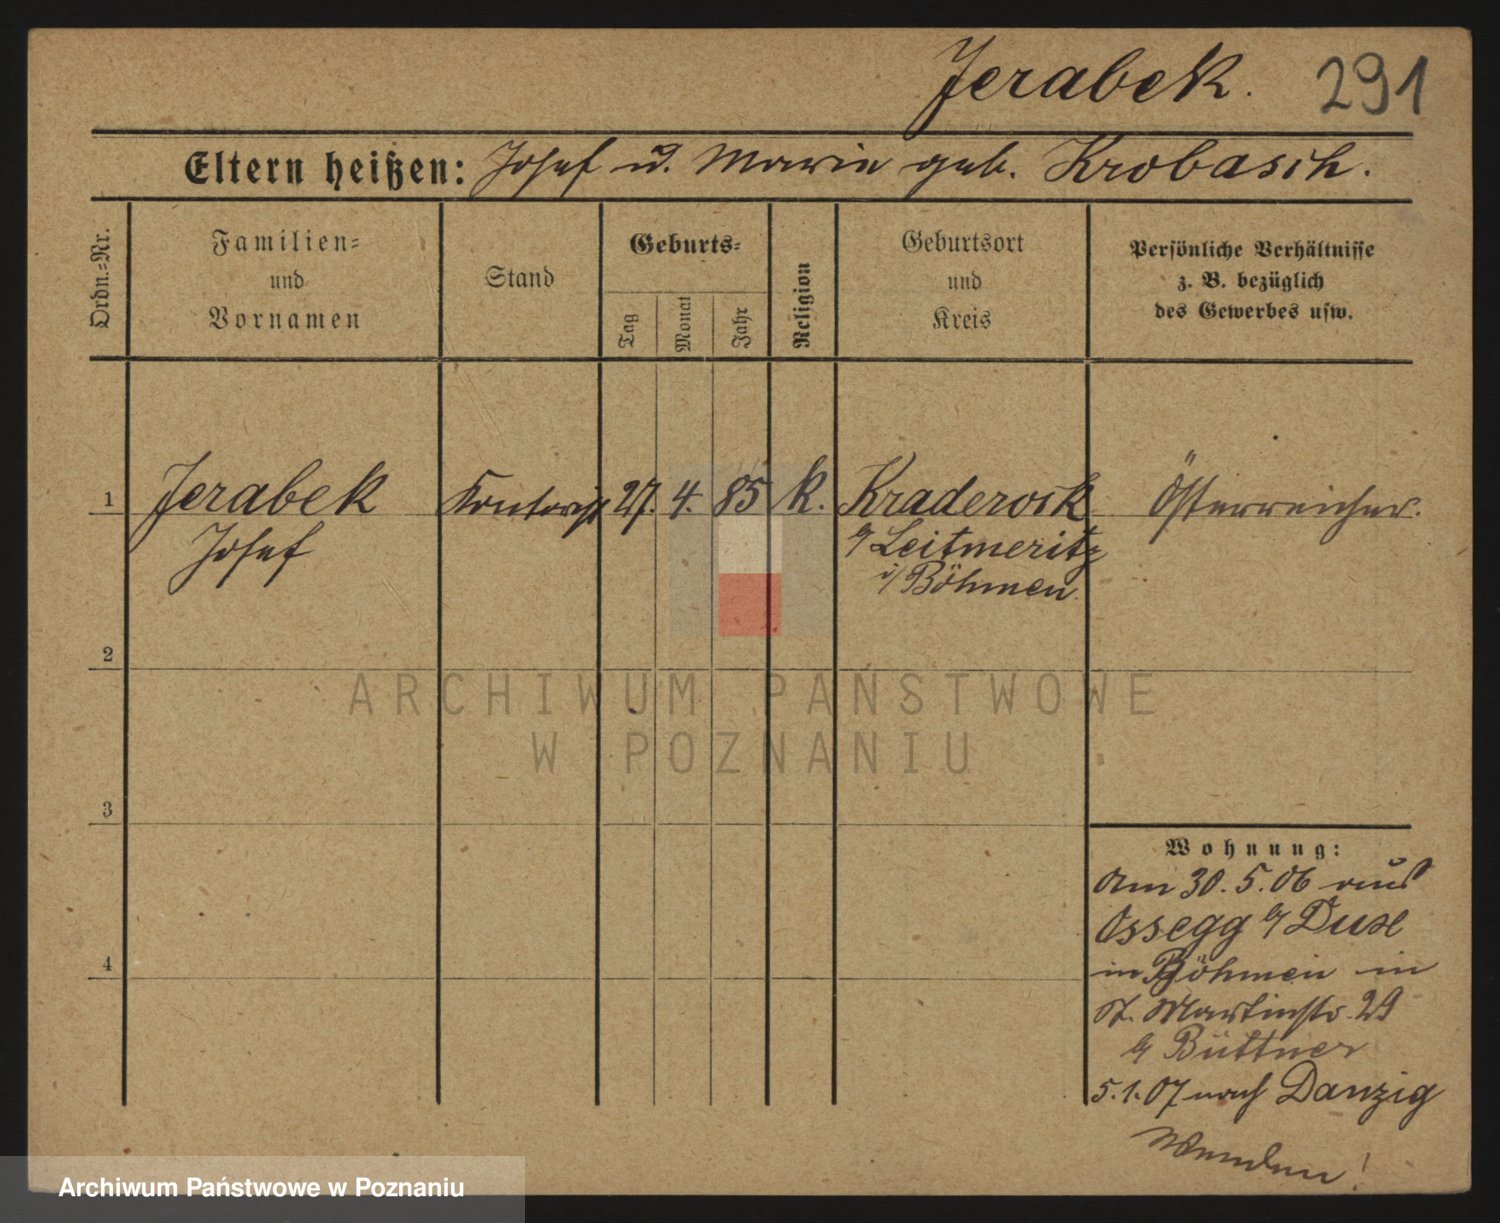 Jerabek. 291
Eltern heißen: Josef u. Marie geb. Krobasch.
Ordn.-Nr.
Familien-
und
Vornamen
Stand
Geburts-
Tag
Monat
Jahr
Religion
Geburtsort
und
Kreis
Persönliche Verhältnisse
z. B. bezüglich
des Gewerbes usw.
1 Jerabek Kontorist 27. 4. 85 k. Kraderosk Österreicher.
Josef b/ Leitmeritz
i/ Böhmen.
2
3
4
Wohnung:
Am 30. 5. 06 aus
Ossegg b/ Dux
in Böhmen in
St. Martinstr. 29
b/ Büttner
5. 1. 07 nach Danzig
Wenden!
ARCHIWUM PAŃSTWOWE
W POZNANIU
Archiwum Państwowe w Poznaniu